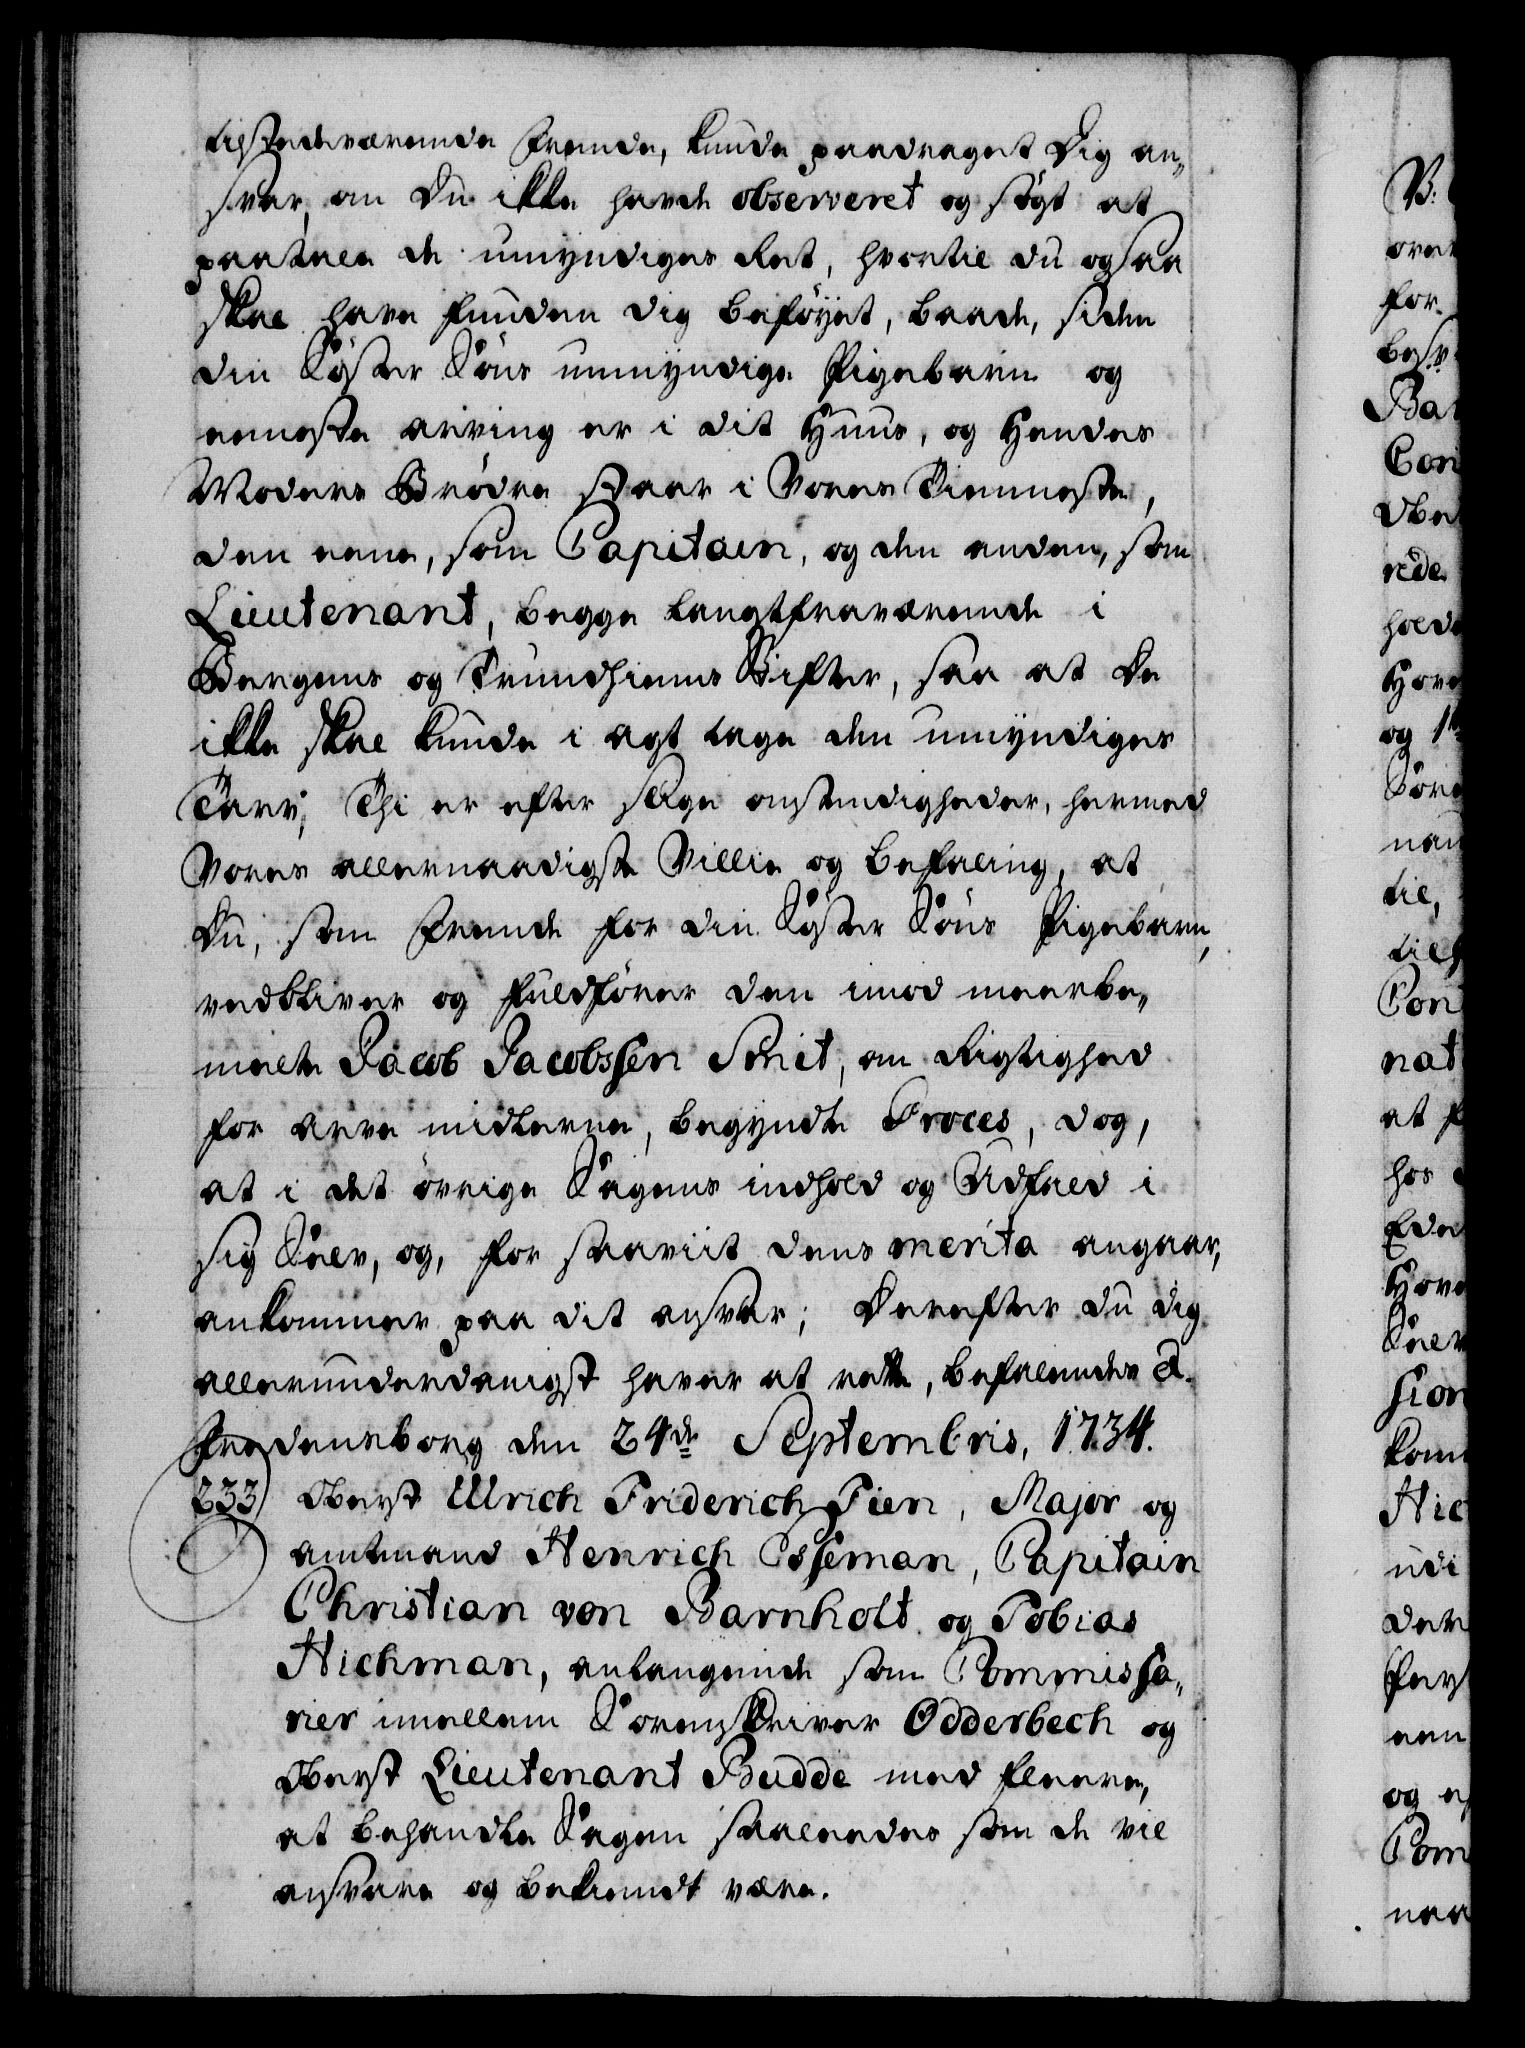 tilstedeværende Frende, kunde paadraget Dig an„
svar, om Du ikke havde observeret og søgt at
paatale de umyndiges Ret, hvortil du ogsaa
skal have funden dig beføyet, baade, siden
din Søster Søns umyndige Pigebarn og
nemeste arving er i dit Huus, og Hendes
Moders Brødre staar i Vores Tienneste,
den eene, som Capitain, og den anden, som
Lieutenant, begge langtfraværende i
Bergens og Trundhiems Stifter, saa at De
ikke skal kunde i agt tage den umyndiges
Tarv; Thi er efter slige omstendigheder, hermed
Vores allernaadigste Villie og befaling, at
Du, som Frende for din Søster Søns Pigebarn,
vedbliver og fuldfører den imod meerbe„
melte Jacob Jacobssen Smit, om Rigtighed
for arve midlerne, begyndte Proces, dog,
at i det øvrige Sagens indhold og Udfald i
sig Selv, og, for saaviit dens merita angaar,
ankommer paa dit ansvar; Derefter du dig
allerunderdanigst haver at rette, befalendes d.
Fredensborg den 24de Septembris, 1734.
233) Oberst Ulrich Friderich Fien, Major og
amtmand Henrich Osseman, Capitain
Christian von Barnholt og Tobias
Hichman, anlangende som Commissa„
rier imellem Sorenskriver Odderbech og
Oberst Lieutenant Budde med fleere,
at behandle Sagen saaleedes som de vil
ansvare og bekiendt være.
V:
for
Bar
Con
rede
holde
og
til,
Con
nat
at
hos
sion
kom
Hic
udi
og
Com